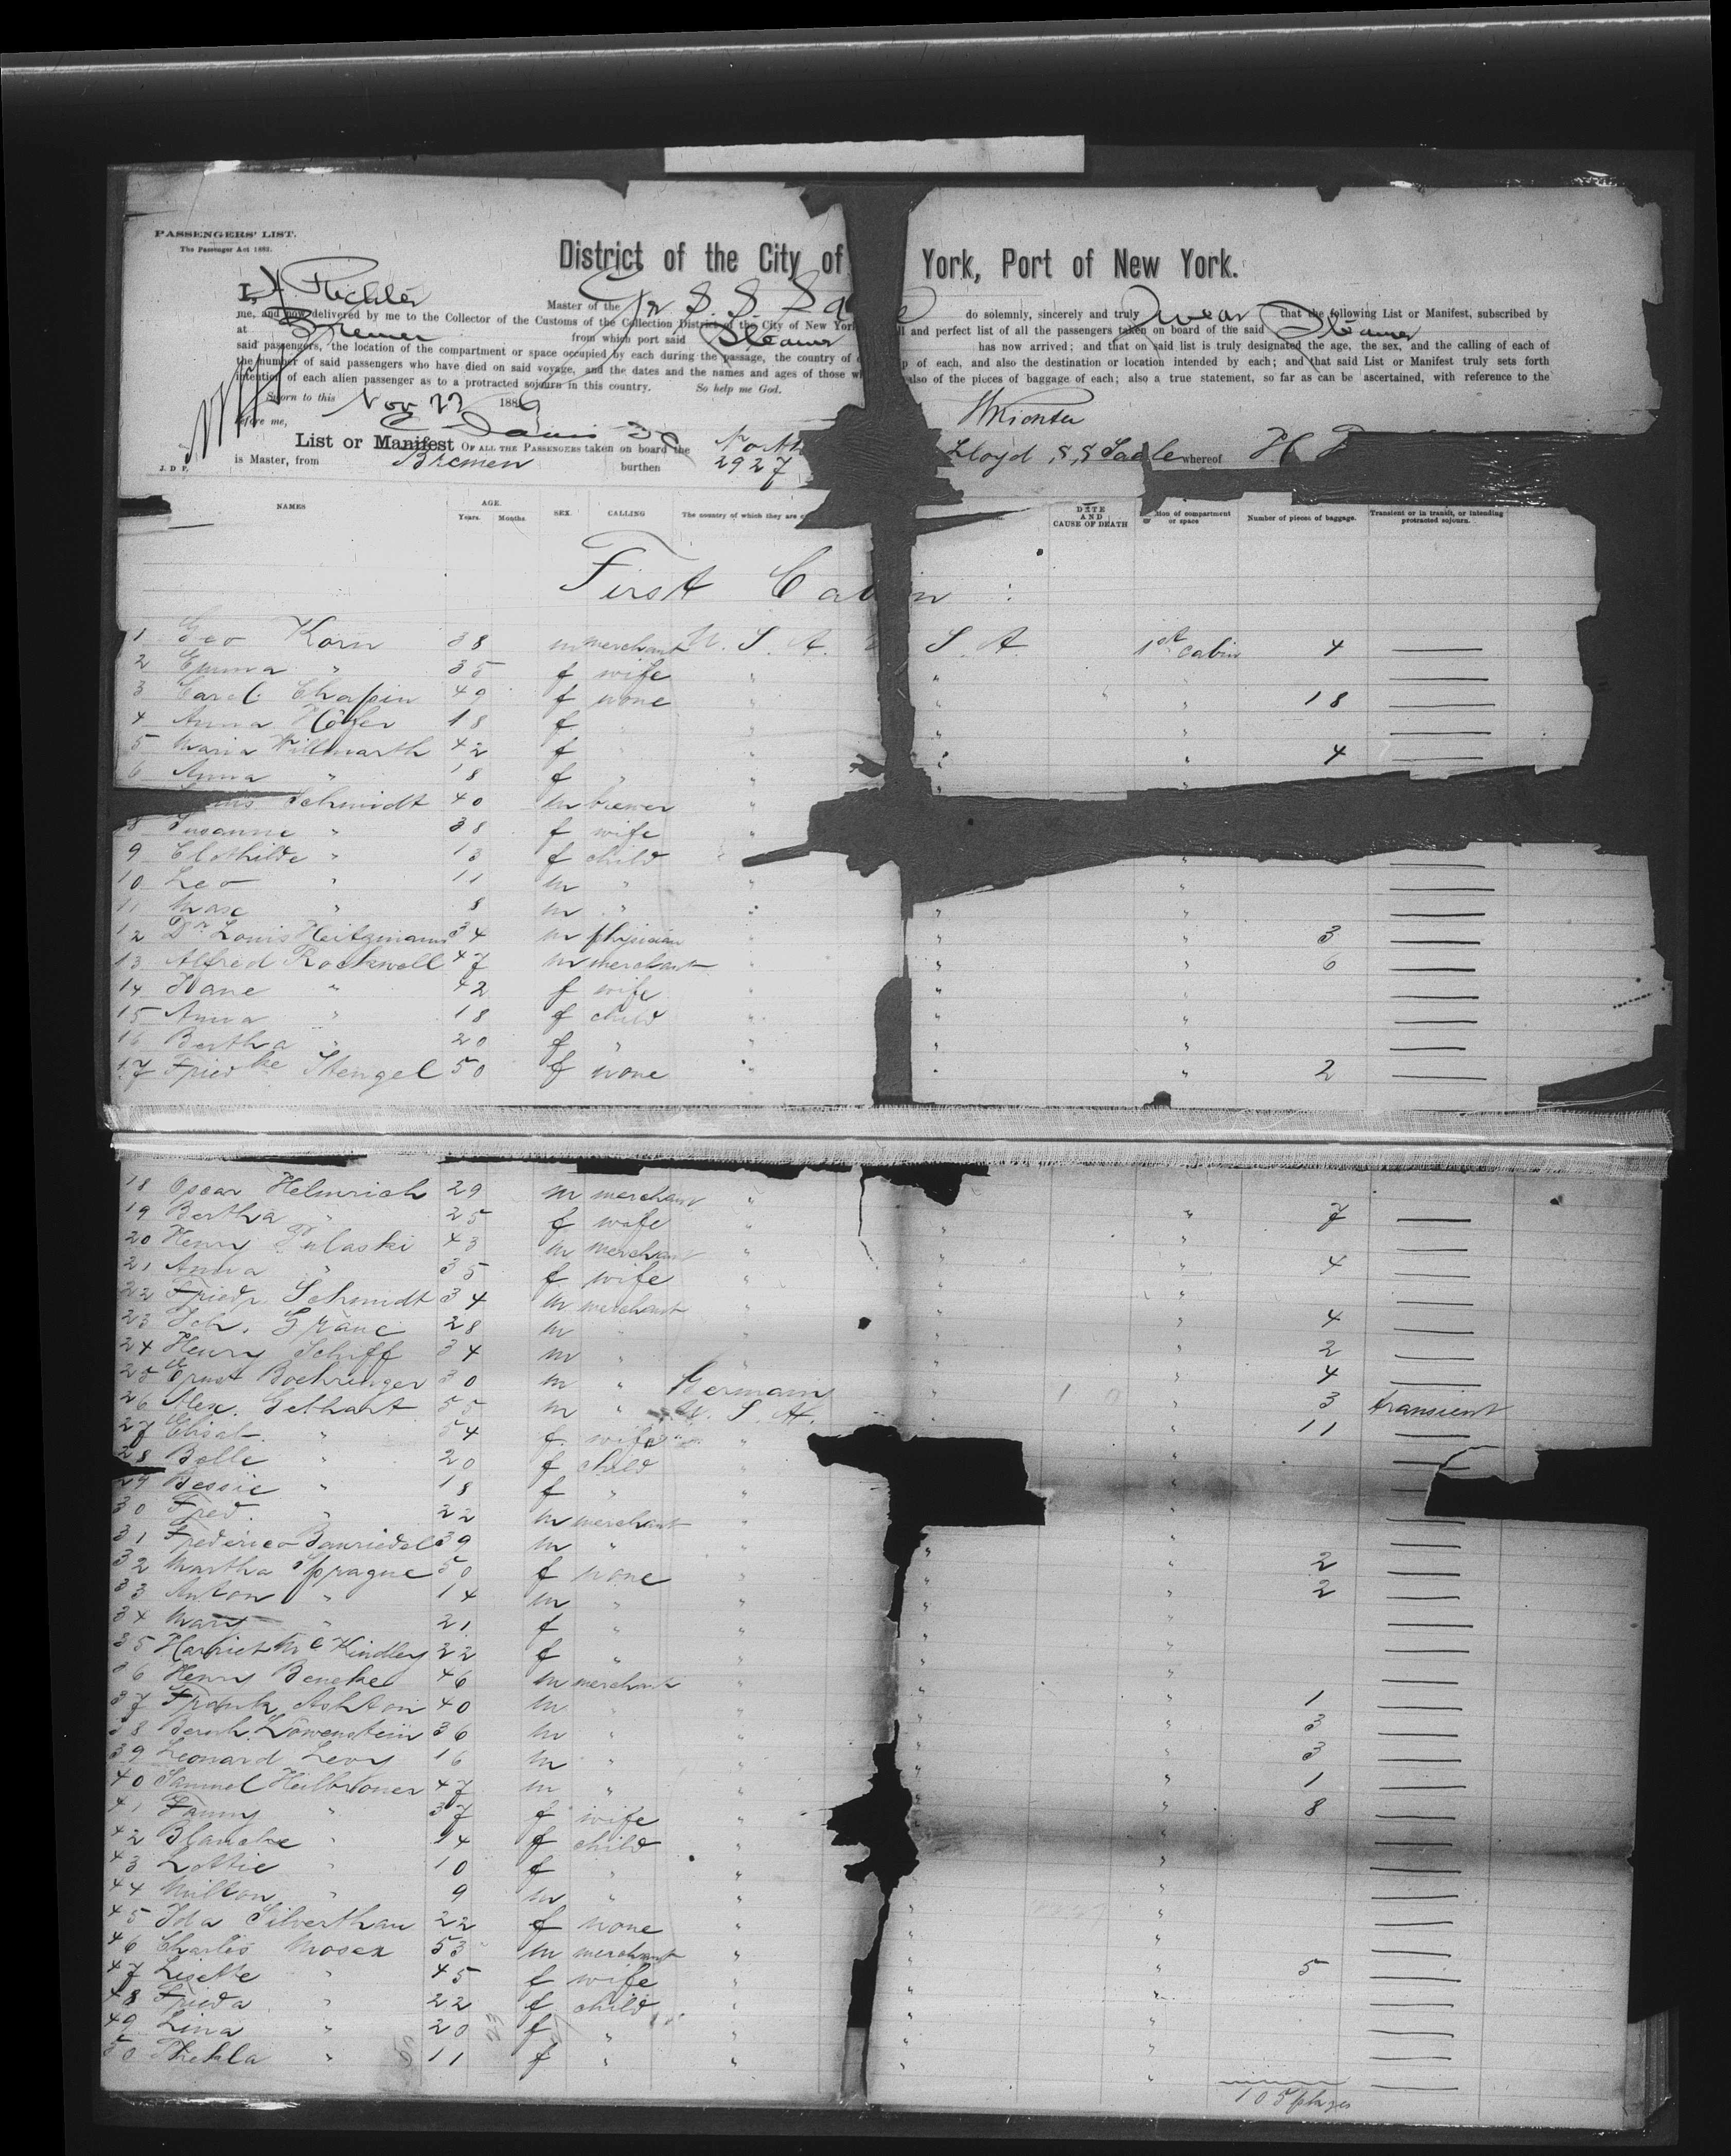 PASSENGERS' LIST.
The Passenger Act 1882.
District of the City of York, Port of New York.
I, H. Richter Master of the Gr S. S. Saale do solemnly, sincerely and truly swear that the following List or Manifest, subscribed by
me, and now delivered by me to the Collector of the Customs of the Collection District of the City of New York and perfect list of all the passengers taken on board of the said Steamer
at Bremen from which port said Steamer has now arrived; and that on said list is truly designated the age, the sex, and the calling of each of
said passengers, the location of the compartment or space occupied by each during the passage, the country of of each, and also the destination or location intended by each; and that said List or Manifest truly sets forth
the number of said passengers who have died on said voyage, and the dates and the names and ages of those also of the pieces of baggage of each; also a true statement, so far as can be ascertained, with reference to the
intention of each alien passenger as to a protracted sojourn in this country. So help me God.
Sworn to this Nov 22 1886 HRichter
before me, Davis
List or Manifest OF ALL THE PASSENGERS taken on board the North Lloyd S,S Saale whereof H
J. D. P. is Master, from Bremen burthen 2927
NAMES AGE. Years. Months. SEX. CALLING The country of which they are DATE AND CAUSE OF DEATH of compartment or space Number of pieces of baggage. Transient or in transit, or intending protracted sojourn.
First Cabin :
1 Geo Korn 38 m merchant U. S. A. U S. A. 1st cabin 4 —
2 Emma " 35 f wife " " —
3 Carol. Chapin 49 f none " " " 18 —
4 Anna Höfer 18 f " " " " —
5 Maria Willmarth 42 f " " " " 4 —
6 Anna " 18 f " " " "
Schmidt 40 m brewer "
8 Susanne " 38 f wife "
9 Clothilde " 13 f child " " —
10 Leo " 11 m " " " —
11 Max " 8 m " " " " —
12 Dr Louis Heitzmann 34 m physician " " " 3 —
13 Alfred Rockwell 47 m merchant " " " 6 —
14 Jane " 42 f wife " " " —
15 Anna " 18 f child " " " —
16 Bertha " 20 f " " " " —
17 Friedke Stengel 50 f none " " " 2 —
18 Oscar Helmrich 29 m merchant " " 7 —
19 Bertha " 25 f wife " " " —
20 Henry Pulaski 43 m merchant " " " 4 —
21 Anna " 35 f wife " " " —
22 Friedr. Schmidt 34 m merchant " " " 4 —
23 Joh. Franc 28 m " " " " 2 —
24 Henry Schiff 34 m " " " " 4 —
25 Ernst Boehringer 30 m " Germany " " 3 transient
26 Alex. Gebhart 55 m " U. S. A. " 11 —
27 Elisab. " 54 f wife " " —
28 Belle " 20 f child " "
29 Bessie " 18 f " " " —
30 Fred. " 22 m merchant " " —
31 Federico Bauriedel 39 m " " " " 2 —
32 Martha Sprague 50 f none " " " 2 —
33 Anton " 14 m " " " " —
34 Mary " 21 f " " " " —
35 Harriet McKindley 22 f " " " " —
36 Henry Beneke 46 m merchant " " " 1 —
37 Frank Ashton 40 m " " " " 3 —
38 Bernh. Löwenstein 36 m " " " " 3 —
39 Leonard Levy 16 m " " " " 1 —
40 Samuel Heilbroner 47 m " " " " 8 —
41 Fanny " 37 f wife " —
42 Blanche " 14 f child " " —
43 Lottie " 10 f " " —
44 Milton " 9 m " " " " —
45 Ida Silverthau 22 f none " " " —
46 Charles Moser 53 m merchant " " " 5 —
47 Lisette " 45 f wife " " " —
48 Frieda " 22 f child " " " —
49 Lina " 20 f " " " " —
50 Thekla " 11 f " " " " —
105 pkges